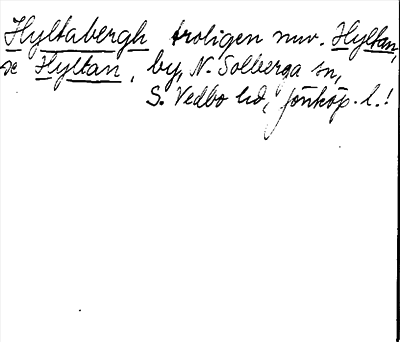 Hyltabergh troligen nuv. Hyltan,
se Hyltan, by, N. Solberga sn,
S. Vedbo hd, Jönköp. l.!